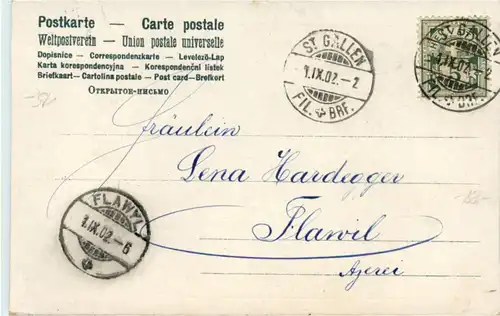 Postkarte — Carte postale
Weltpostverein — Union postale universelle
Dopisnice — Correspondenzkarte — Levelező-Lap
Karta korespondencyjna — Korespondenční lístek
Briefkaart — Cartolina postale — Post card — Brefkort
Открытое-письмо
ST GALLEN
1.IX.02.-2
FIL. BRF.
ST GALLEN
1.IX.02.-2
FIL. BRF.
Fräulein
Lena Hardegger
Flawil
FLAWYL
1.IX.02.-6